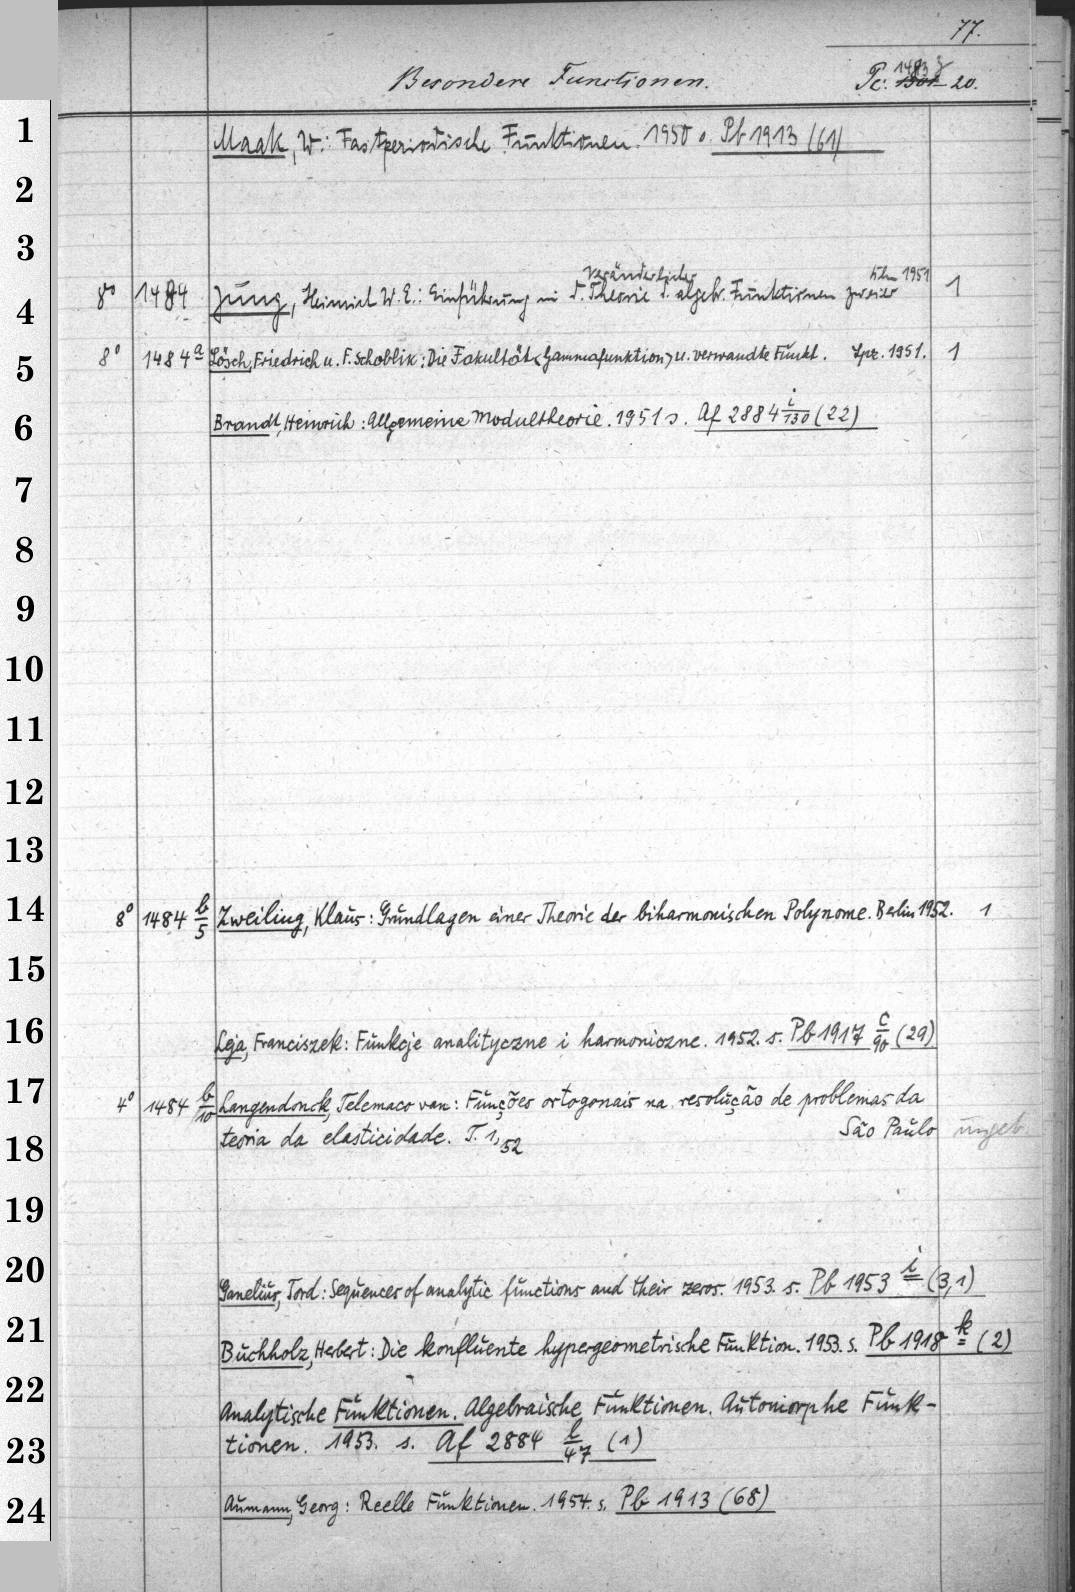 77.
Besondere Functionen. Pc. 1483 20.
1 Maak, W.: Fastperiodische Funktionen. 1950 s. Pb 1913 (61)
2
3
Veränderlicher Bln 1951
4 8° 1484 Jung, Heinrich W. E.: Einführung in d. Theorie d. algebr. Funktionen zweier 1
5 8° 1484 a Lösch, Friedrich u. F. Schoblik: Die Fakultät <Gammafunktion> u. verwandte Funkt. Lpz. 1951. 1
6 Brandt, Heinrich: Allgemeine Modultheorie. 1951 s. Af 2884 i/130 (22)
7
8
9
10
11
12
13
14 8° 1484 b/5 Zweiling, Klaus: Grundlagen einer Theorie der biharmonischen Polynome. Berlin 1952. 1
15
16 Leja, Franciszek: Funkcje analityczne i harmoniczne. 1952. s. Pb 1917 c/90 (29)
17 4° 1484 b/10 Langendonck, Telemaco van: Funções ortogonais na resolução de problemas da
18 teoria da elasticidade. T. 1, 52 São Paulo ungeb.
19
20 Ganelius, Tord: Sequences of analytic functions and their zeros. 1953. s. Pb 1953 i (3,1)
21 Buchholz, Herbert: Die konfluente hypergeometrische Funktion. 1953. s. Pb 1918 k (2)
22 Analytische Funktionen. Algebraische Funktionen. Automorphe Funk-
23 tionen. 1953. s. Af 2884 l/47 (1)
24 Aumann, Georg: Reelle Funktionen. 1954. s. Pb 1913 (68)